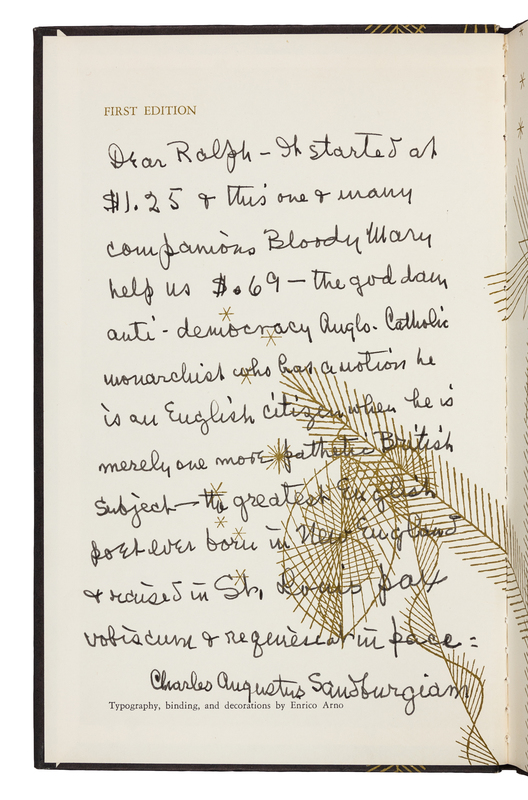 FIRST EDITION
Dear Ralph - It started at
$1.25 & this one & many
companions Bloody Mary
help us $.69 - the god dam
anti-democracy Anglo-Catholic
monarchist who has a notion he
is an English citizen when he is
merely one more pathetic British
Subject - the greatest English
poet ever born in New England
& raised in St. Louis pax
vobiscum & requiescat in pace =
Charles Augustus Sandburgiam
Typography, binding, and decorations by Enrico Arno